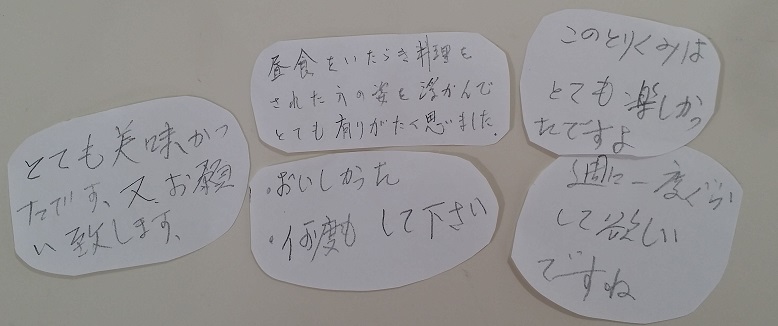 とても美味かっ
たです、又、お願
い致します、
昼食をいたらき料理を
された方の姿を浮かんで
とても有りがたく思いました。
・おいしかった
・何度もして下さい
このとりくみは
とても楽しかっ
たですよ
週に一度ぐらい
して欲しい
ですね